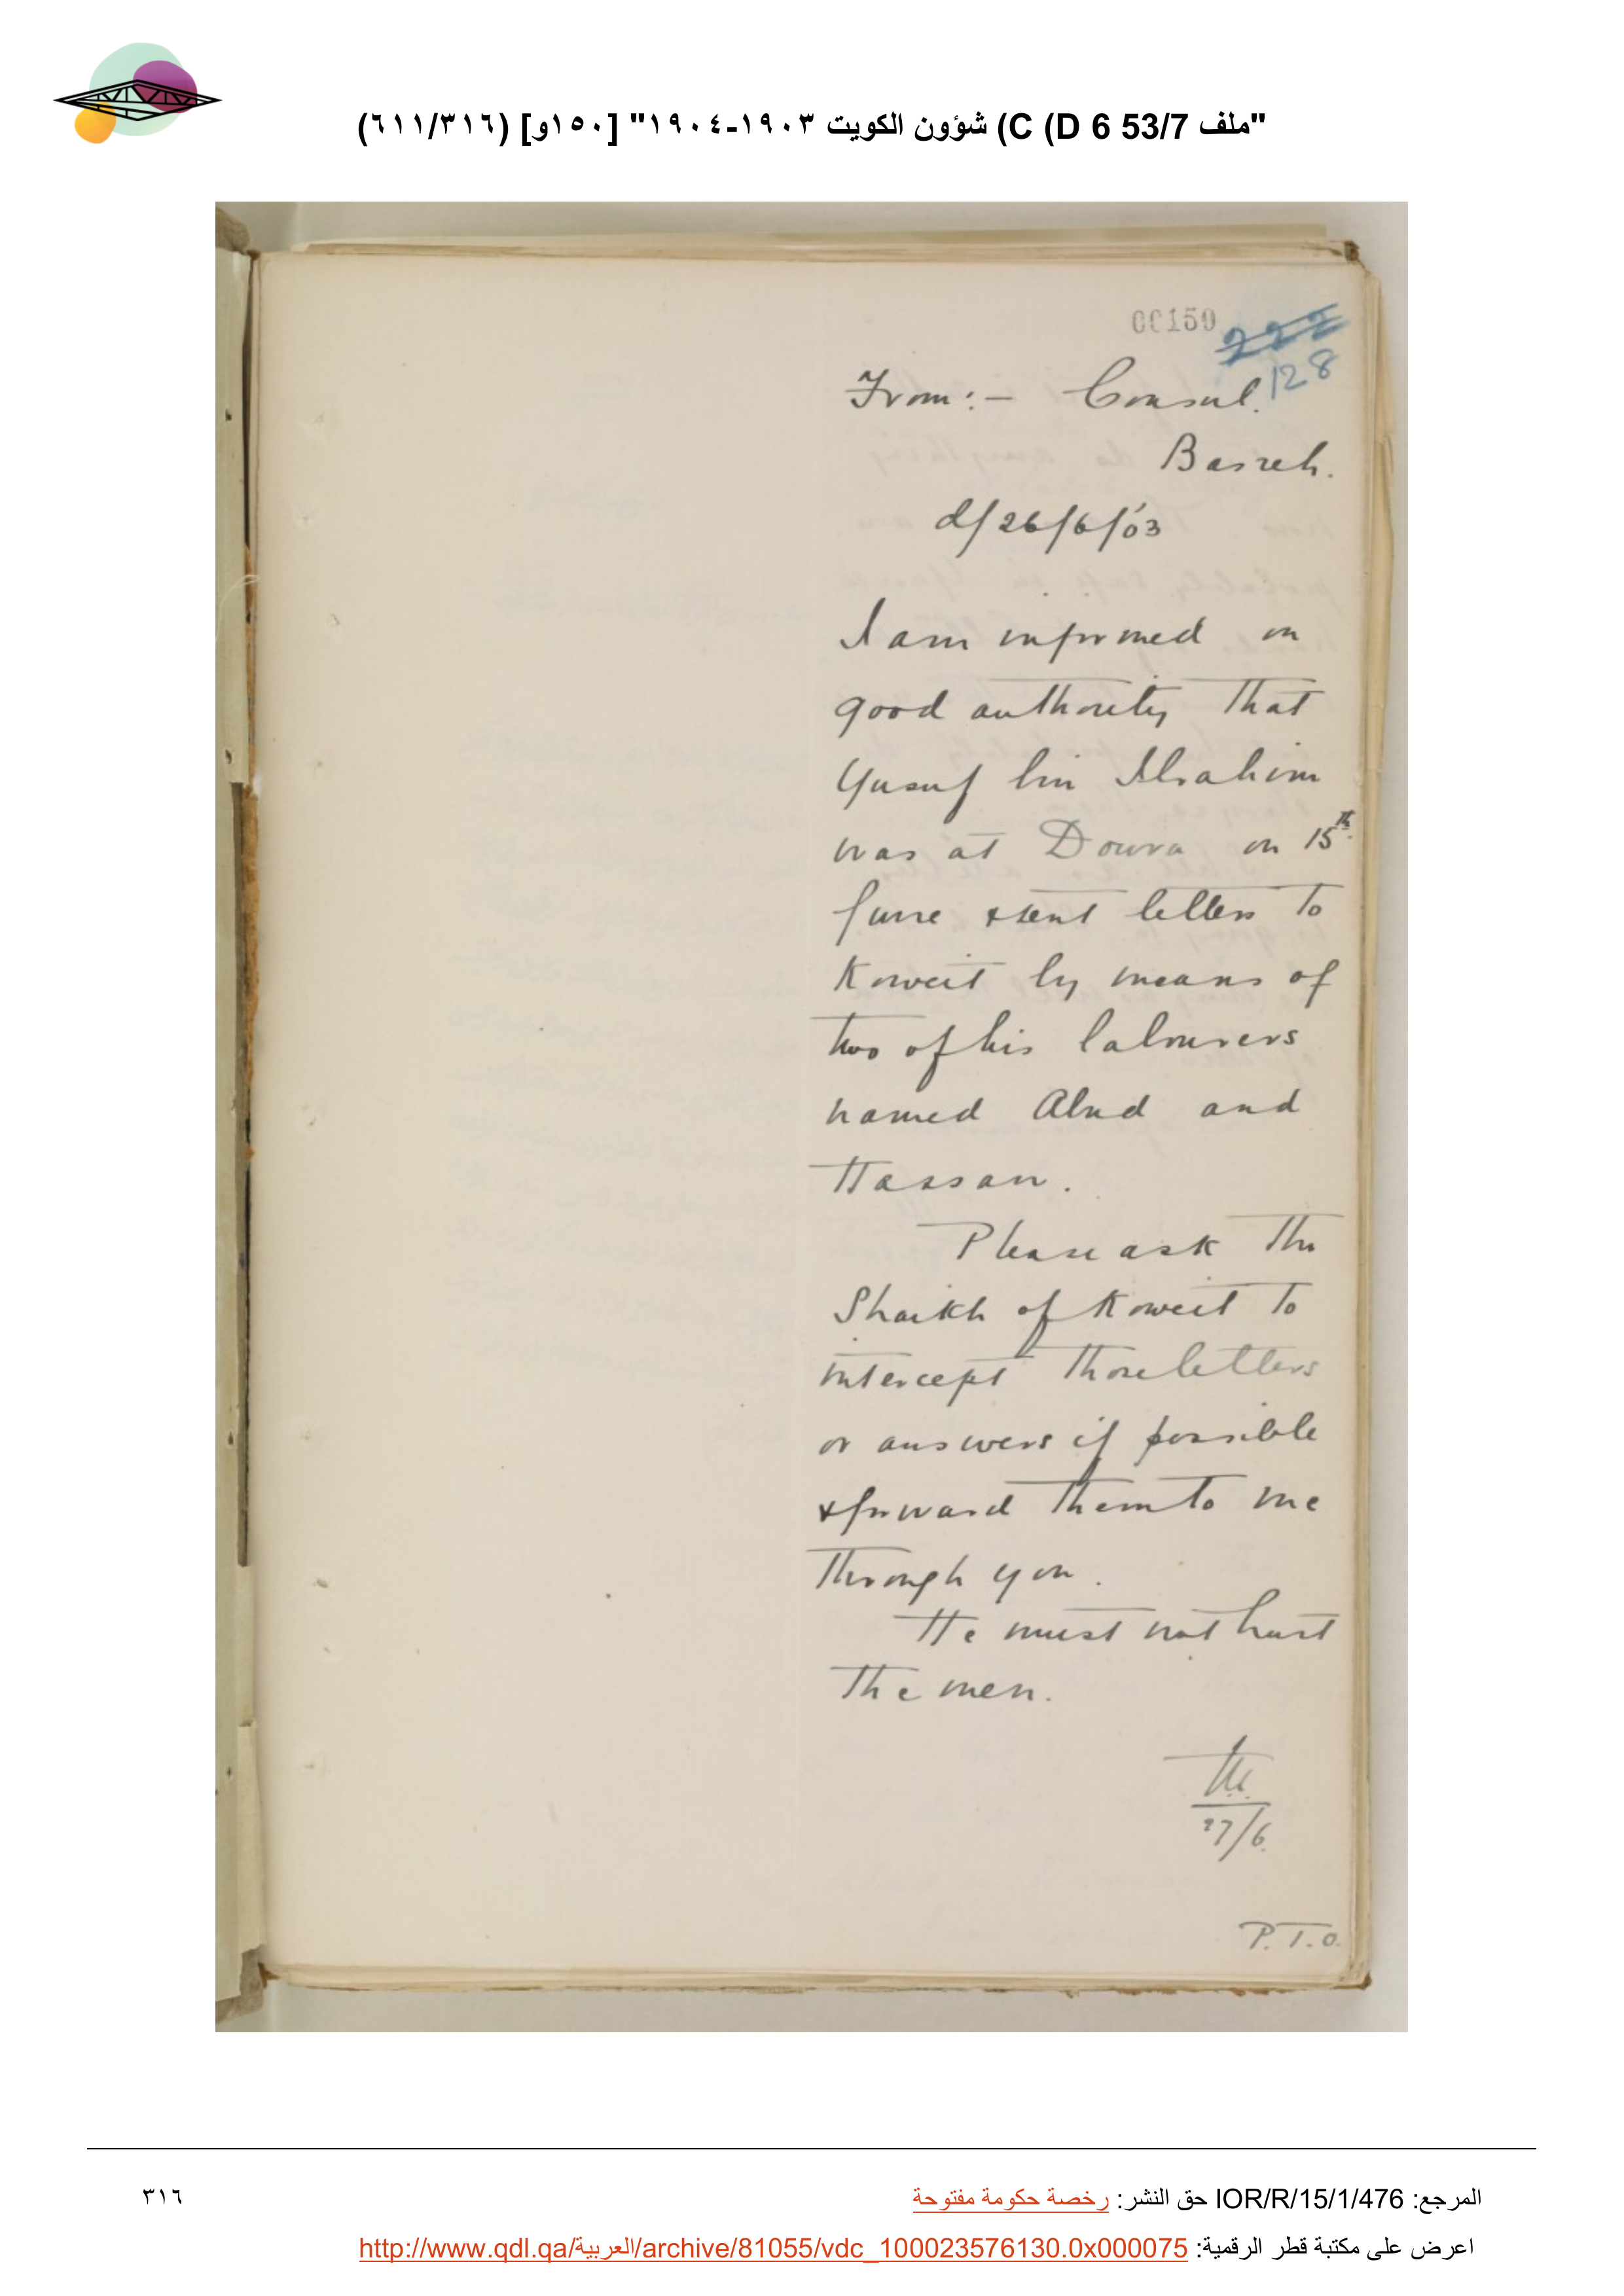 "ملف 53/7 C (D 6) شؤون الكويت ١٩٠٣-١٩٠٤" [١٥٠و] (٦١١/٣١٦)
00150
222
128
From:- Consul.
Basreh.
d/26/6/'03
I am informed on
good authority that
Yusuf bin Ibrahim
was at Dowra on 15th
June & sent letters to
Koweit by means of
two of his labourers
named Abud and
Hassan.
Please ask the
Shaikh of Koweit to
intercept those letters
or answers if possible
& forward them to me
through you.
He must not hurt
the men.
27/6
P.T.O.
المرجع: IOR/R/15/1/476 حق النشر: رخصة حكومة مفتوحة
٣١٦
اعرض على مكتبة قطر الرقمية: http://www.qdl.qa/العربية/archive/81055/vdc_100023576130.0x000075